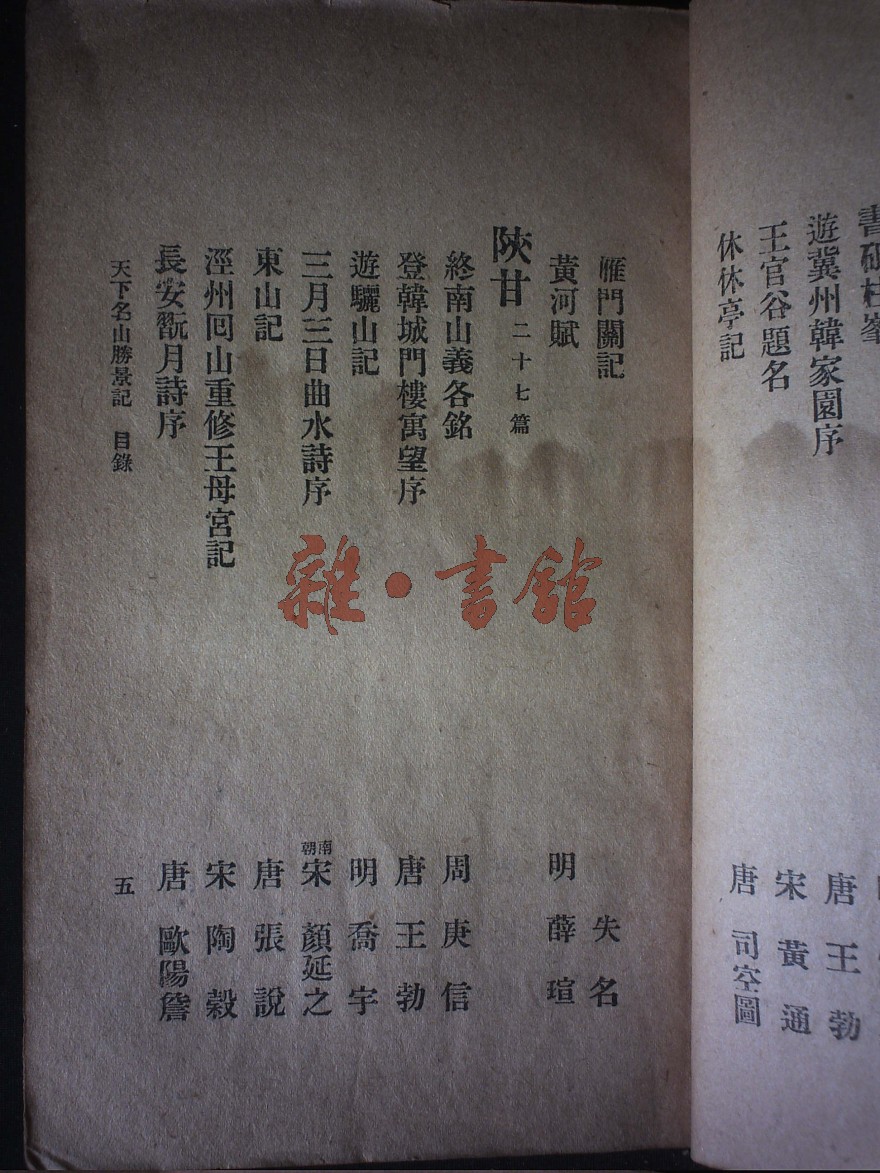 書
遊冀州韓家園序 唐 王勃
王官谷題名 宋 黃通
休休亭記 唐 司空圖
雁門關記 失名
黃河賦 明 薛瑄
陝甘 二十七篇
終南山義各銘 周 庚信
登韓城門樓寓望序 唐 王勃
遊驪山記 明 喬宇
三月三日曲水詩序 南朝 宋 顏延之
東山記 唐 張說
涇州回山重修王母宮記 宋 陶穀
長安翫月詩序 唐 歐陽詹
天下名山勝景記 目錄 五
雜·書館